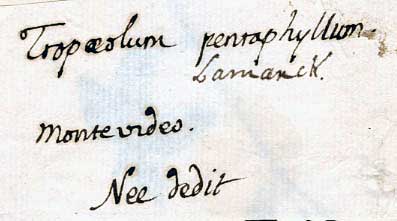 Tropæolum pentaphyllum
Lamarck.
Montevideo.
Nee dedit